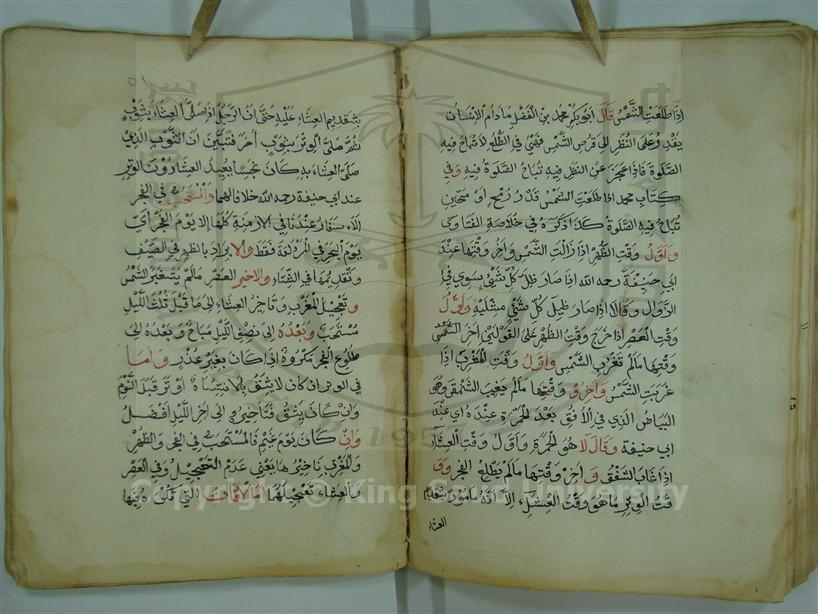 اذا طلعت الشمس قال ابو بكر محمد بن الفضل ما دام الانسان
يقدر على النظر الى قرص الشمس فهي في الطلوع لا تباح فيه
الصلوة فاذا عجز عن النظر فيه تباح الصلوة فيه وفي
كتاب محمد اذا طلعت الشمس قدر رمح او رمحين
تباح فيه الصلوة كذا ذكره في خلاصة الفتاوى
واول وقت الظهر اذا زالت الشمس واخر وقتها عند
ابي حنيفة رحمه الله اذا صار ظل كل شئ سوى فئ
الزوال وقالا اذا صار ظل كل شئ مثليه واول
وقت العصر اذا خرج وقت الظهر على القولين اخر
وقتها مالم تغرب الشمس واول وقت المغرب اذا
غربت الشمس واخر وقتها مالم يغيب الشفق وهو
البياض الذي في الافق بعد الحمرة عنده اي عند
ابي حنيفة وقالا هو الحمرة واول وقت العشاء
اذا غاب الشفق واخر وقتها مالم يطلع الفجر وو
قت الوتر ما هو وقت العشاء الا انه مامور بتقديم
العشاء
بتقديم العشاء عليه حتى ان الرجل اذا صلى العشاء بثوب
ثم صلى الوتر بثوب اخر فتبين ان الثوب الذي
صلى العشاء به كان نجسا يعيد العشاء دون الوتر
عند ابي حنيفة رحمه الله خلافا لهما والمستحب في الفجر
الاسفار عندنا في الازمنة كلها الا يوم الفجر اي
يوم النحر في المزدلفة فقط والابراد بالظهر في الصيف
وتقديمها في الشتاء والاخير العصر مالم يتغير الشمس
وتعجيل المغرب وتاخير العشاء الى ما قبل ثلث الليل
مستحب وبعده الى نصف الليل مباح وبعده الى
طلوع الفجر مكروه اذا كان بغير عذر واما
في الوتر ان كان لا يثق بالانتباه اوتر قبل النوم
وان كان يثق فتاخيره الى اخر الليل افضل
وان كان يوم غيم فالمستحب في الفجر والظهر
والمغرب تاخيرها يعني عدم التعجيل وفي العصر
والعشاء تعجيلهما اما الاوقات التي تكره فيها
© King Saud University
1957